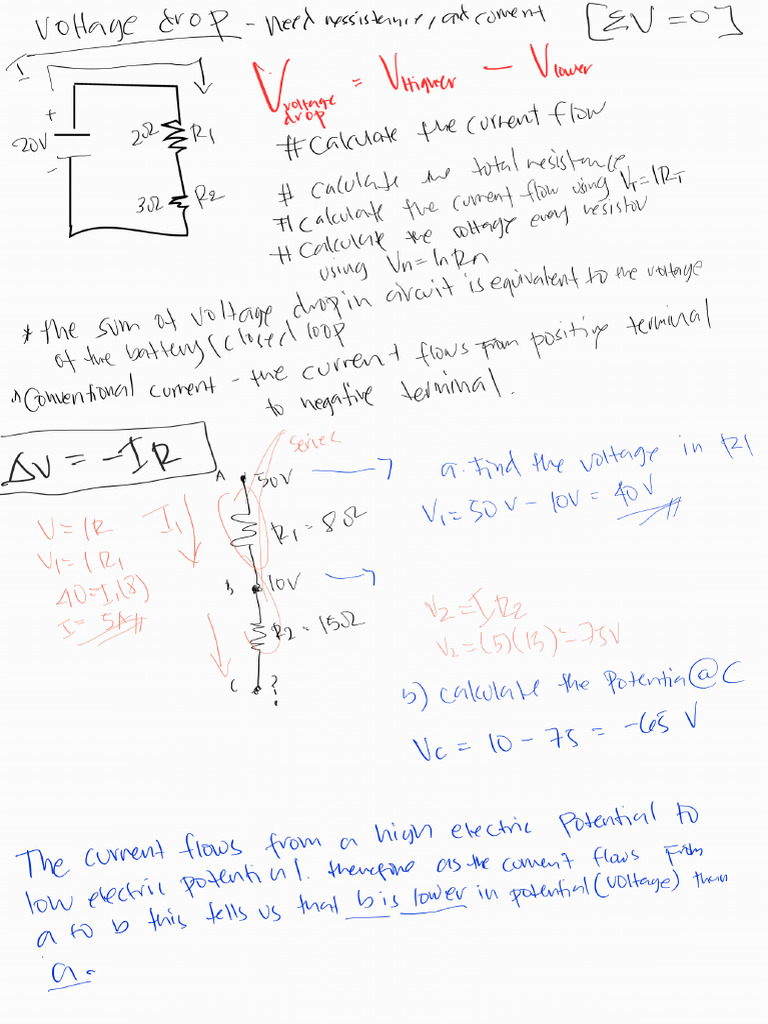 Voltage drop - Need ressistance, and current [ΣV = 0]
I
V voltage drop = V Higher - V lower
+
20V
-
2Ω R1
3Ω R2
# Calculate the current flow
# Calculate the total resistance
# Calculate the current flow using VT = IRT
# Calculate the voltage every resistor
using Vn = InRn
* The sum of voltage drop in circuit is equivalent to the voltage
of the battery/closed loop
* Conventional current - the current flows from positive terminal
to negative terminal.
ΔV = -IR
series
A 50V
a. Find the voltage in R1
V1 = 50V - 10V = 40V
V = IR
V1 = I R1
40 = I1(8)
I = 5A
I1
R1 = 8Ω
B 10V
R2 = 15Ω
C ?
V2 = I R2
V2 = (5)(15) = 75V
b) calculate the Potential @ C
Vc = 10 - 75 = -65 V
The current flows from a high electric Potential to
low electric potential. therefore as the current flows From
a to b this tells us that b is lower in potential (voltage) than
a.